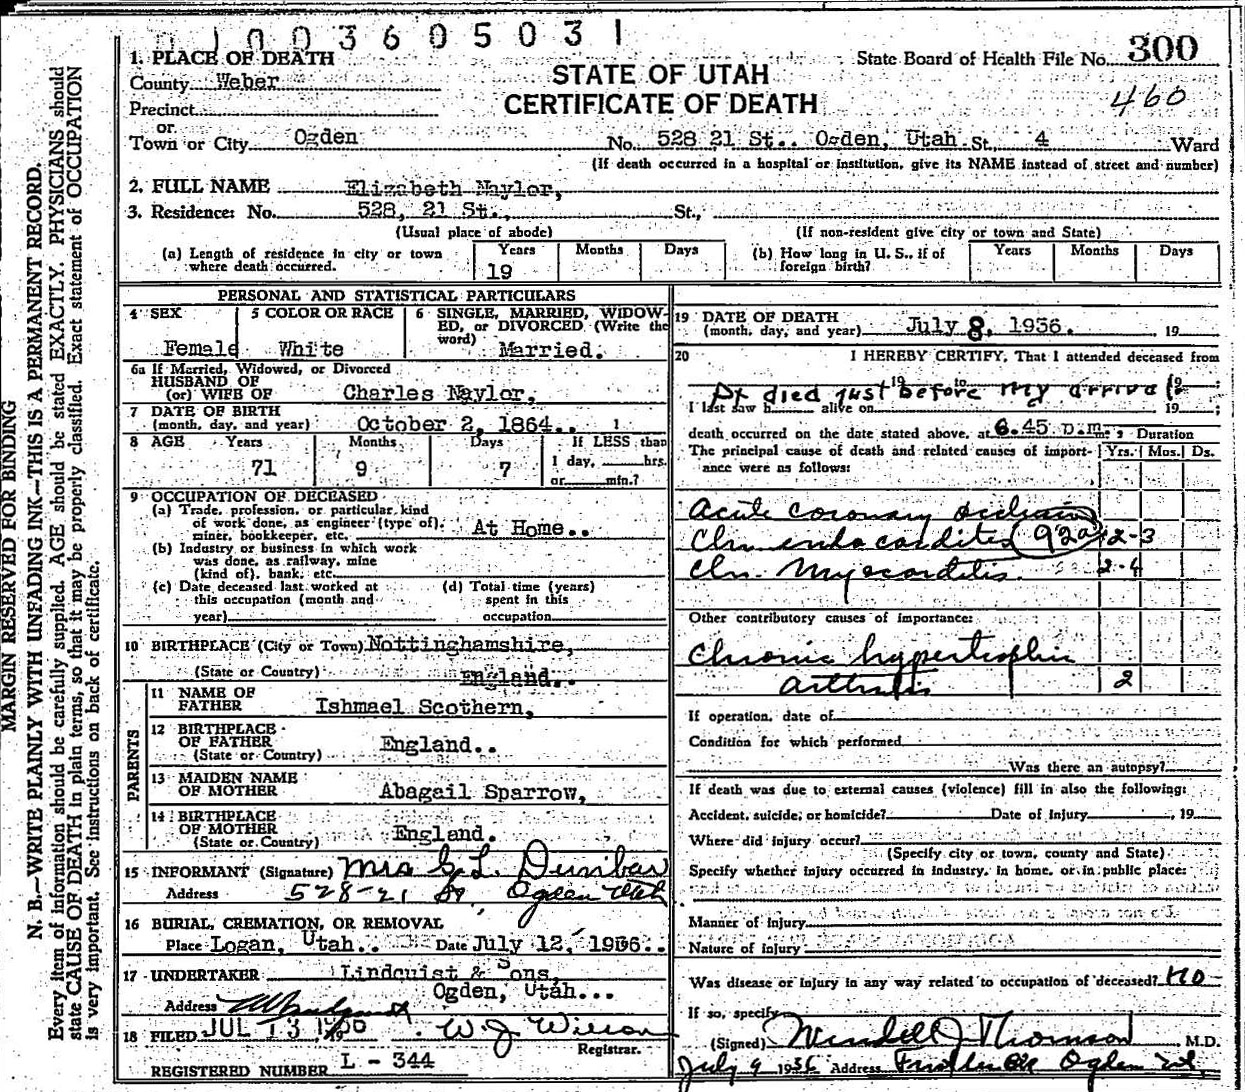 3605031
State Board of Health File No. 300
460
1. PLACE OF DEATH
STATE OF UTAH
CERTIFICATE OF DEATH
County Weber
Precinct
or
Town or City Ogden No. 528 21 St.. Ogden, Utah St., 4 Ward
(If death occurred in a hospital or institution, give its NAME instead of street and number)
2. FULL NAME Elizabeth Naylor,
3. Residence: No. 528, 21 St., St.,
(Usual place of abode) (If non-resident give city or town and State)
(a) Length of residence in city or town where death occurred. Years 19 Months Days
(b) How long in U. S., if of foreign birth? Years Months Days
PERSONAL AND STATISTICAL PARTICULARS
4 SEX Female
5 COLOR OR RACE White
6 SINGLE, MARRIED, WIDOWED, or DIVORCED (Write the word) Married.
6a If Married, Widowed, or Divorced
HUSBAND OF
(or) WIFE OF Charles Naylor,
7 DATE OF BIRTH
(month, day, and year) October 2, 1864..
8 AGE Years 71 Months 9 Days 7 If LESS than
1 day, hrs.
or min.?
9 OCCUPATION OF DECEASED
(a) Trade, profession, or particular kind
of work done, as engineer (type of),
miner, bookkeeper, etc. At Home..
(b) Industry or business in which work
was done, as railway, mine
(kind of), bank, etc.
(c) Date deceased last worked at
this occupation (month and
year)
(d) Total time (years)
spent in this
occupation
10 BIRTHPLACE (City or Town) Nottinghamshire,
(State or Country) England..
PARENTS
11 NAME OF
FATHER Ishmael Scothern,
12 BIRTHPLACE
OF FATHER
(State or Country) England..
13 MAIDEN NAME
OF MOTHER Abagail Sparrow,
14 BIRTHPLACE
OF MOTHER
(State or Country) England.
15 INFORMANT (Signature) Mrs G. L. Dunbar
Address 528-21 St, Ogden Utah
16 BURIAL, CREMATION, OR REMOVAL
Place Logan, Utah.. Date July 12, 1936..
17 UNDERTAKER Lindquist & Sons,
Ogden, Utah...
Address
18 FILED JUL 13 1936 W. J. Wilson
Registrar.
REGISTERED NUMBER L - 344
19 DATE OF DEATH
(month, day, and year) July 8, 1936. , 19
20 I HEREBY CERTIFY, That I attended deceased from
19 to 19 ;
Pt died just before my arrival
I last saw h alive on 19 ;
death occurred on the date stated above, at 6.45 p.m. Duration
The principal cause of death and related causes of importance were as follows: Yrs. Mos. Ds.
Acute coronary occlusion
Chr. endocarditis 92a 2-3
Chr. Myocarditis 2-4
Other contributory causes of importance:
Chronic hypertrophic
arthritis 2
If operation, date of
Condition for which performed
Was there an autopsy?
If death was due to external causes (violence) fill in also the following:
Accident, suicide, or homicide? Date of Injury , 19
Where did injury occur?
(Specify city or town, county and State)
Specify whether injury occurred in industry, in home, or in public place:
Manner of injury
Nature of injury
Was disease or injury in any way related to occupation of deceased? No
If so, specify
(Signed) Wendell J Thomson , M.D.
July 9 1936 Address Ogden
MARGIN RESERVED FOR BINDING
N. B.—WRITE PLAINLY WITH UNFADING INK—THIS IS A PERMANENT RECORD.
Every item of information should be carefully supplied. AGE should be stated EXACTLY. PHYSICIANS should
state CAUSE OF DEATH in plain terms, so that it may be properly classified. Exact statement of OCCUPATION
is very important. See instructions on back of certificate.